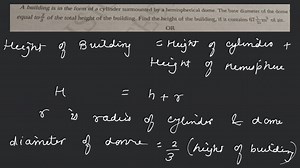 A building is in the form of a cylinder surmounted by a hemispherical dome. The base diameter of the dome
equal to 2/3 of the total height of the building. Find the height of the building, if it contains 67 1/21 m³ of air.
OR
Height of Building = Height of cylinder +
Height of Hemisphere
H = h + r
r is radius of cylinder & dome
diameter of dome = 2/3 (height of building)